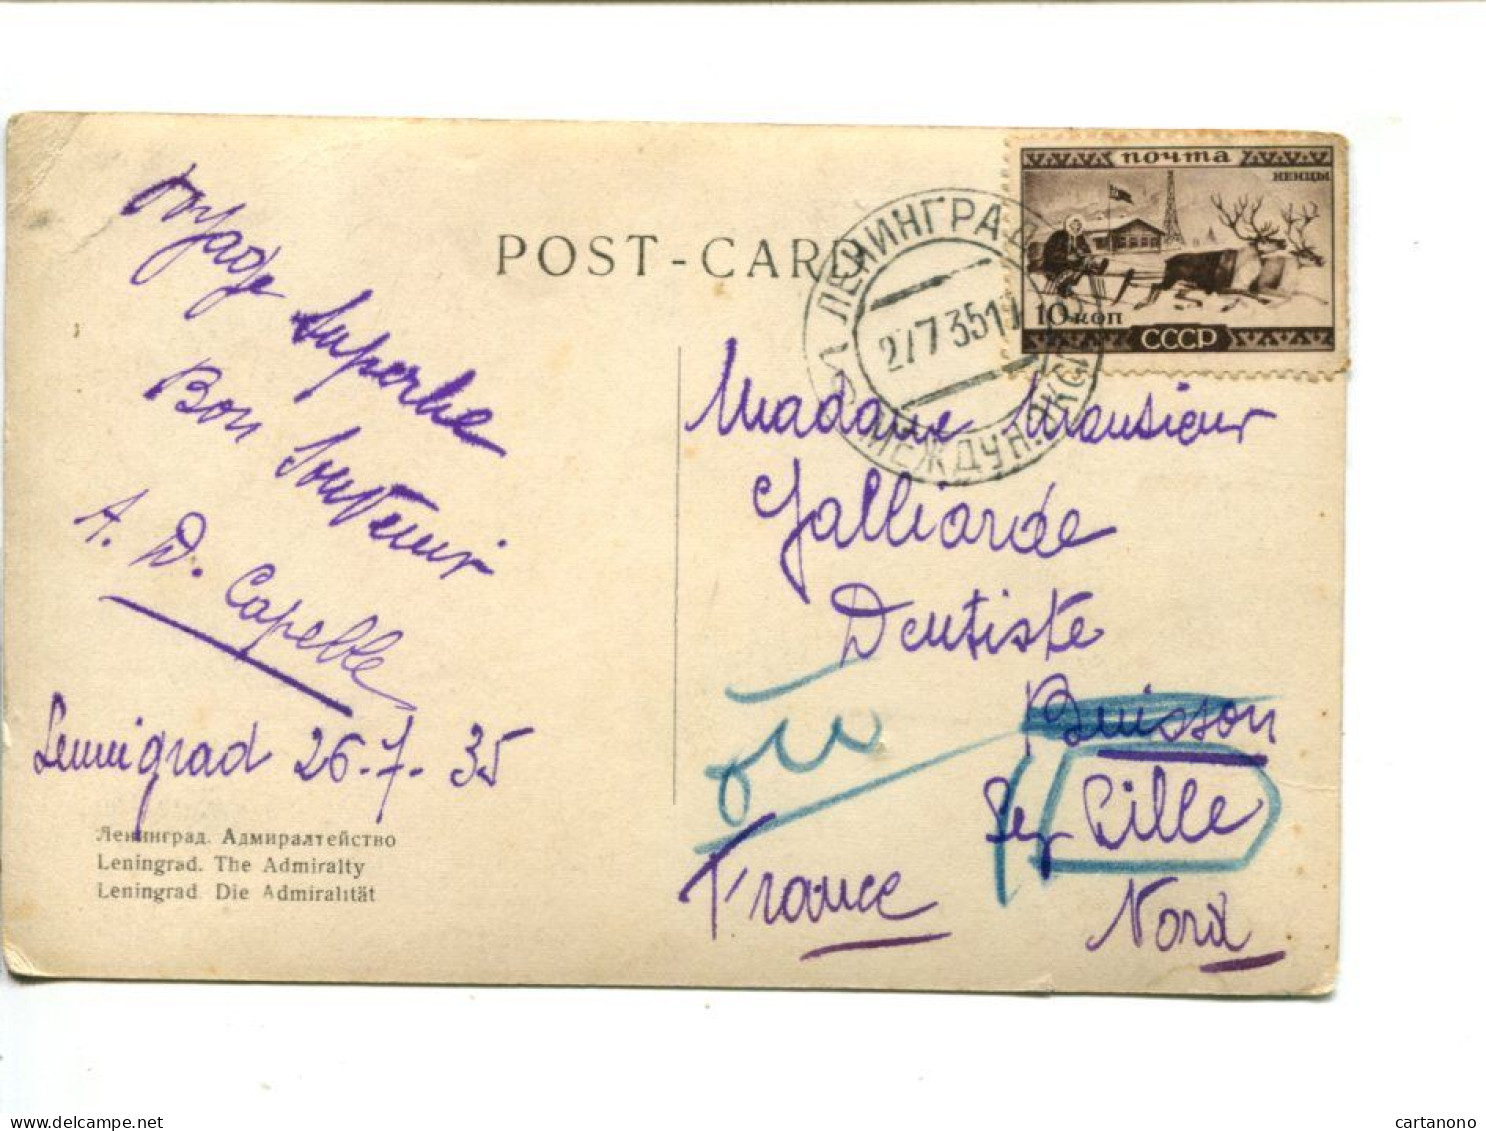 POST-CARD
почта
НЕНЦЫ
10 коп
СССР
ЛЕНИНГРАД
27 7 35
МЕЖДУН. ЭКСП
Voyage
Superbe
Bon Souvenir
A. D. Capelle
Leningrad 26-7-35
Ленинград. Адмиралтейство
Leningrad. The Admiralty
Leningrad. Die Admiralität
Madame Monsieur
Galliarde
Dentiste
Buisson
Lille
France
Nord
cartanono
delcampe.net